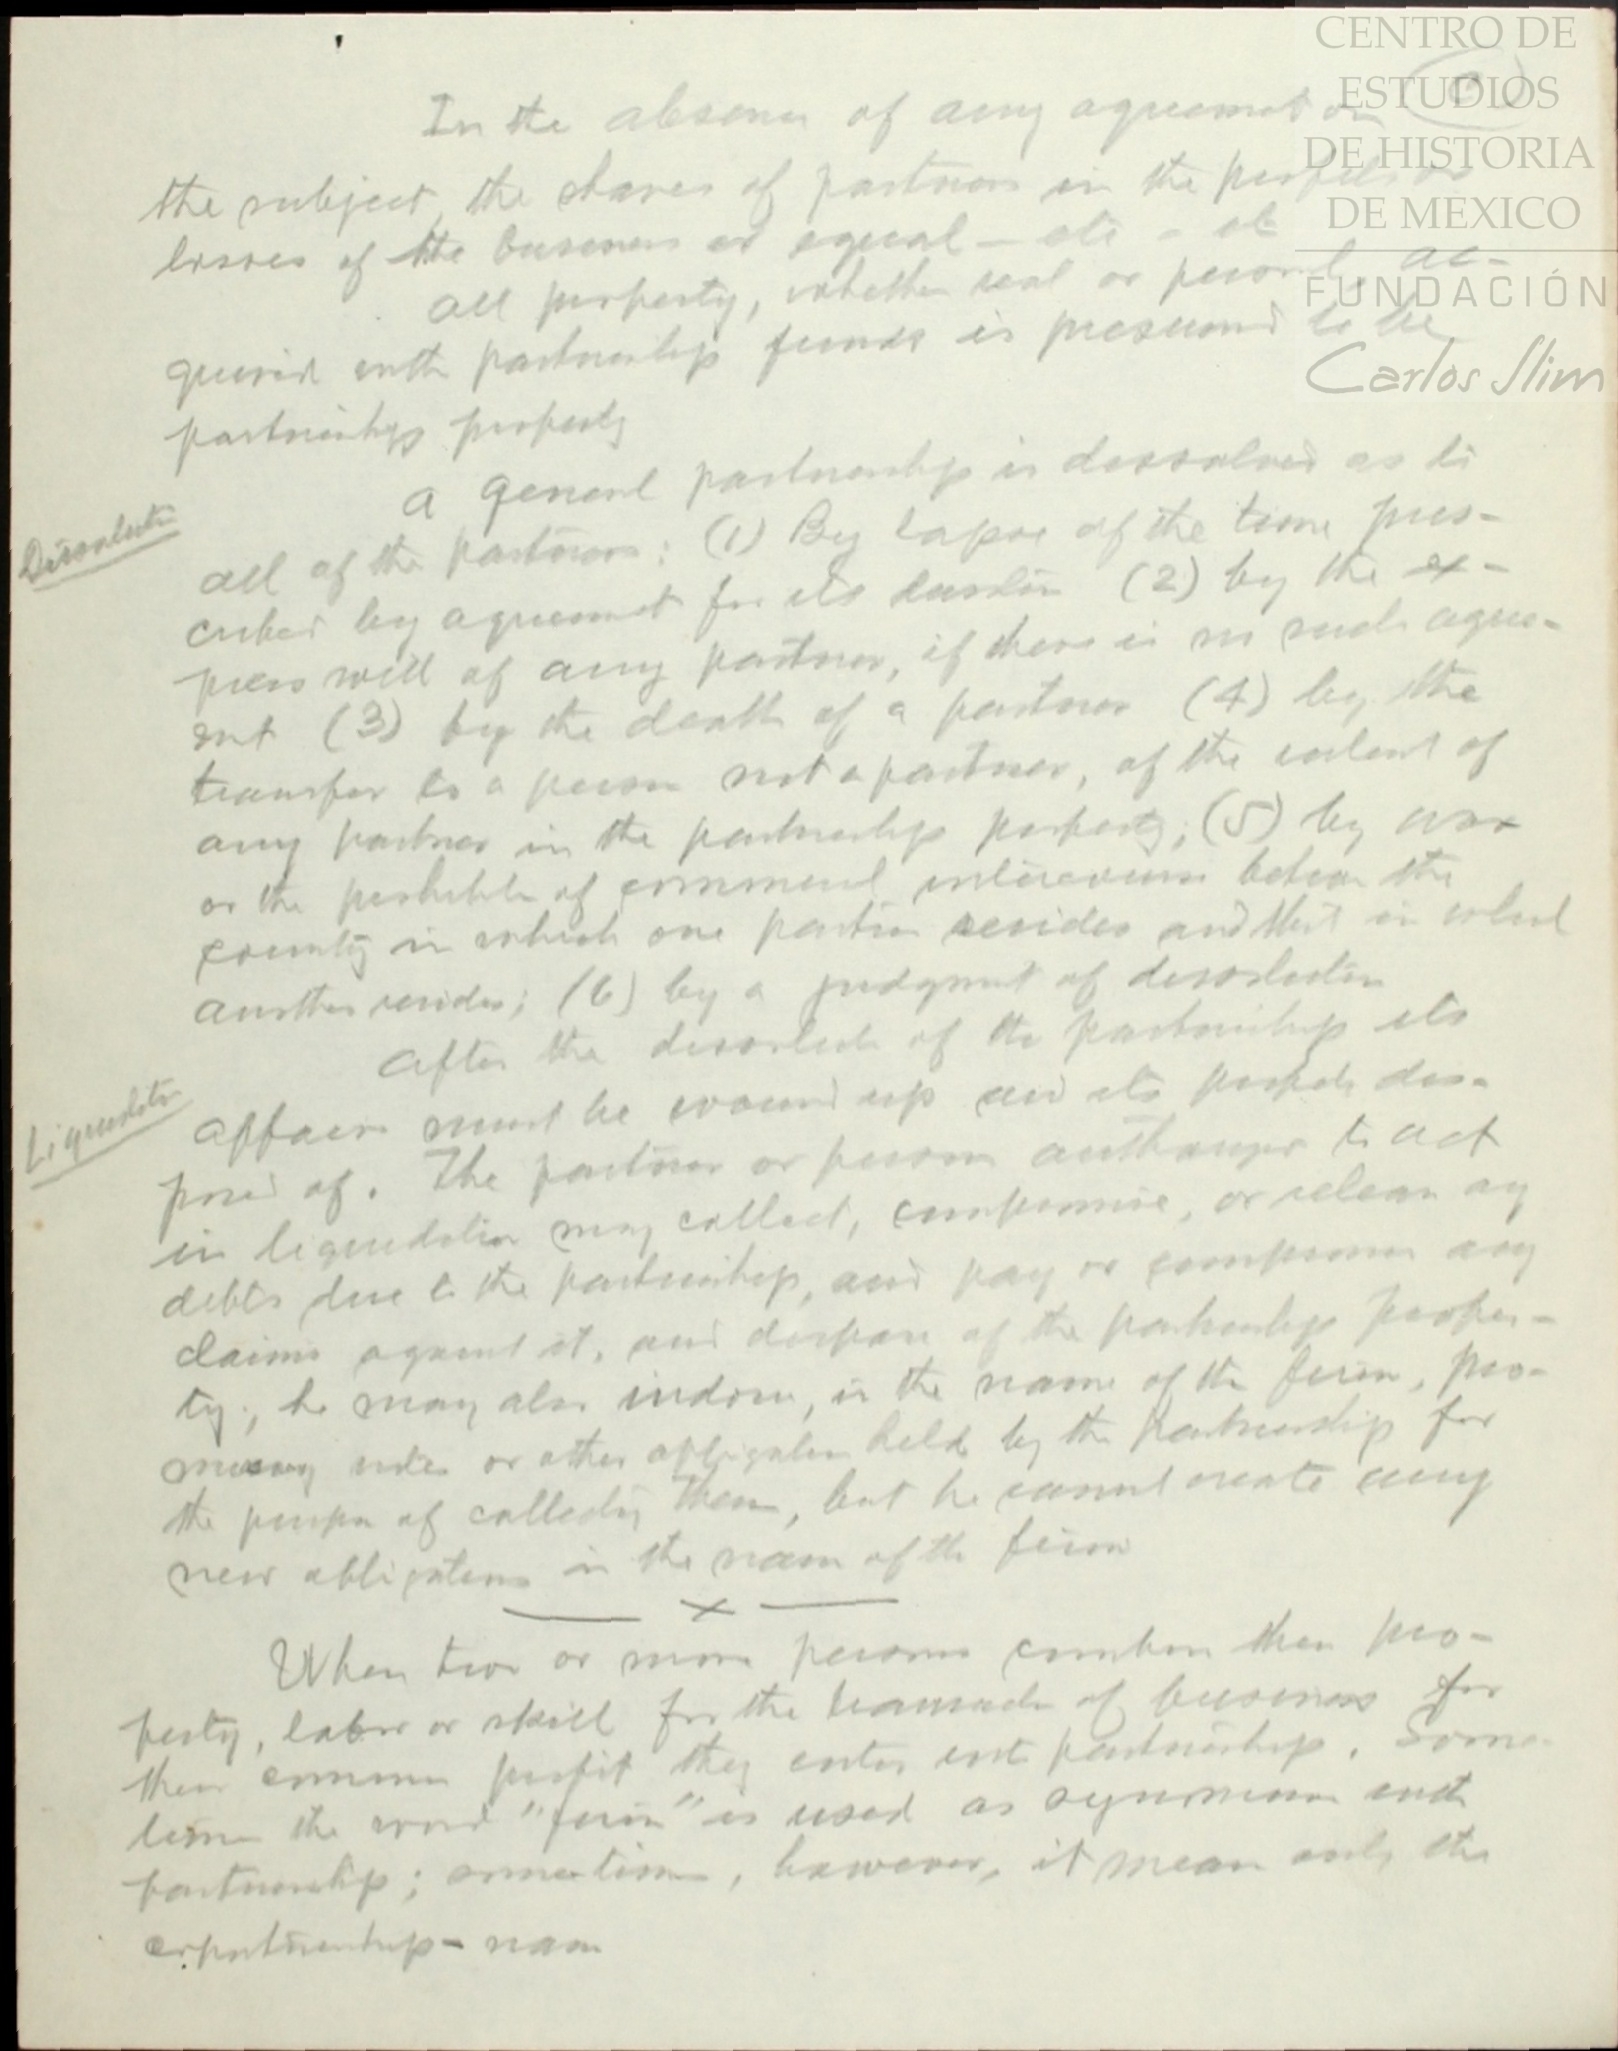 CENTRO DE
ESTUDIOS
DE HISTORIA
DE MEXICO
FUNDACIÓN
Carlos Slim
In the absence of any agreement on
the subject, the shares of partners in the profits or
losses of the business are equal — etc - etc
All property, whether real or personal, ac-
quired with partnership funds is presumed to be
partnership property
Dissolution
A general partnership is dissolved as to
all of the partners: (1) By lapse of the time pres-
cribed by agreement for its duration (2) by the ex-
press will of any partner, if there is no such agree-
ent (3) by the death of a partner (4) by the
transfer to a person not a partner, of the interest of
any partner in the partnership property; (5) by war
or the prohibition of commercial intercourse between the
country in which one partner resides and that in which
another resides; (6) by a judgment of dissolution
Liquidation
After the dissolution of the partnership its
affairs must be wound up and its property dis-
posed of. The partner or person authorized to act
in liquidation may collect, compromise, or release any
debts due to the partnership, and pay or compromise any
claims against it, and dispose of the partnership proper-
ty; he may also indorse, in the name of the firm, pro-
missory notes or other obligations held by the partnership for
the purpose of collecting them, but he cannot create any
new obligations in the name of the firm
— x —
When two or more persons combine their pro-
perty, labor or skill for the transaction of business for
their common profit they enter into partnership. Some-
times the word "firm" is used as synonymous with
partnership; sometimes, however, it means only the
copartnership - name